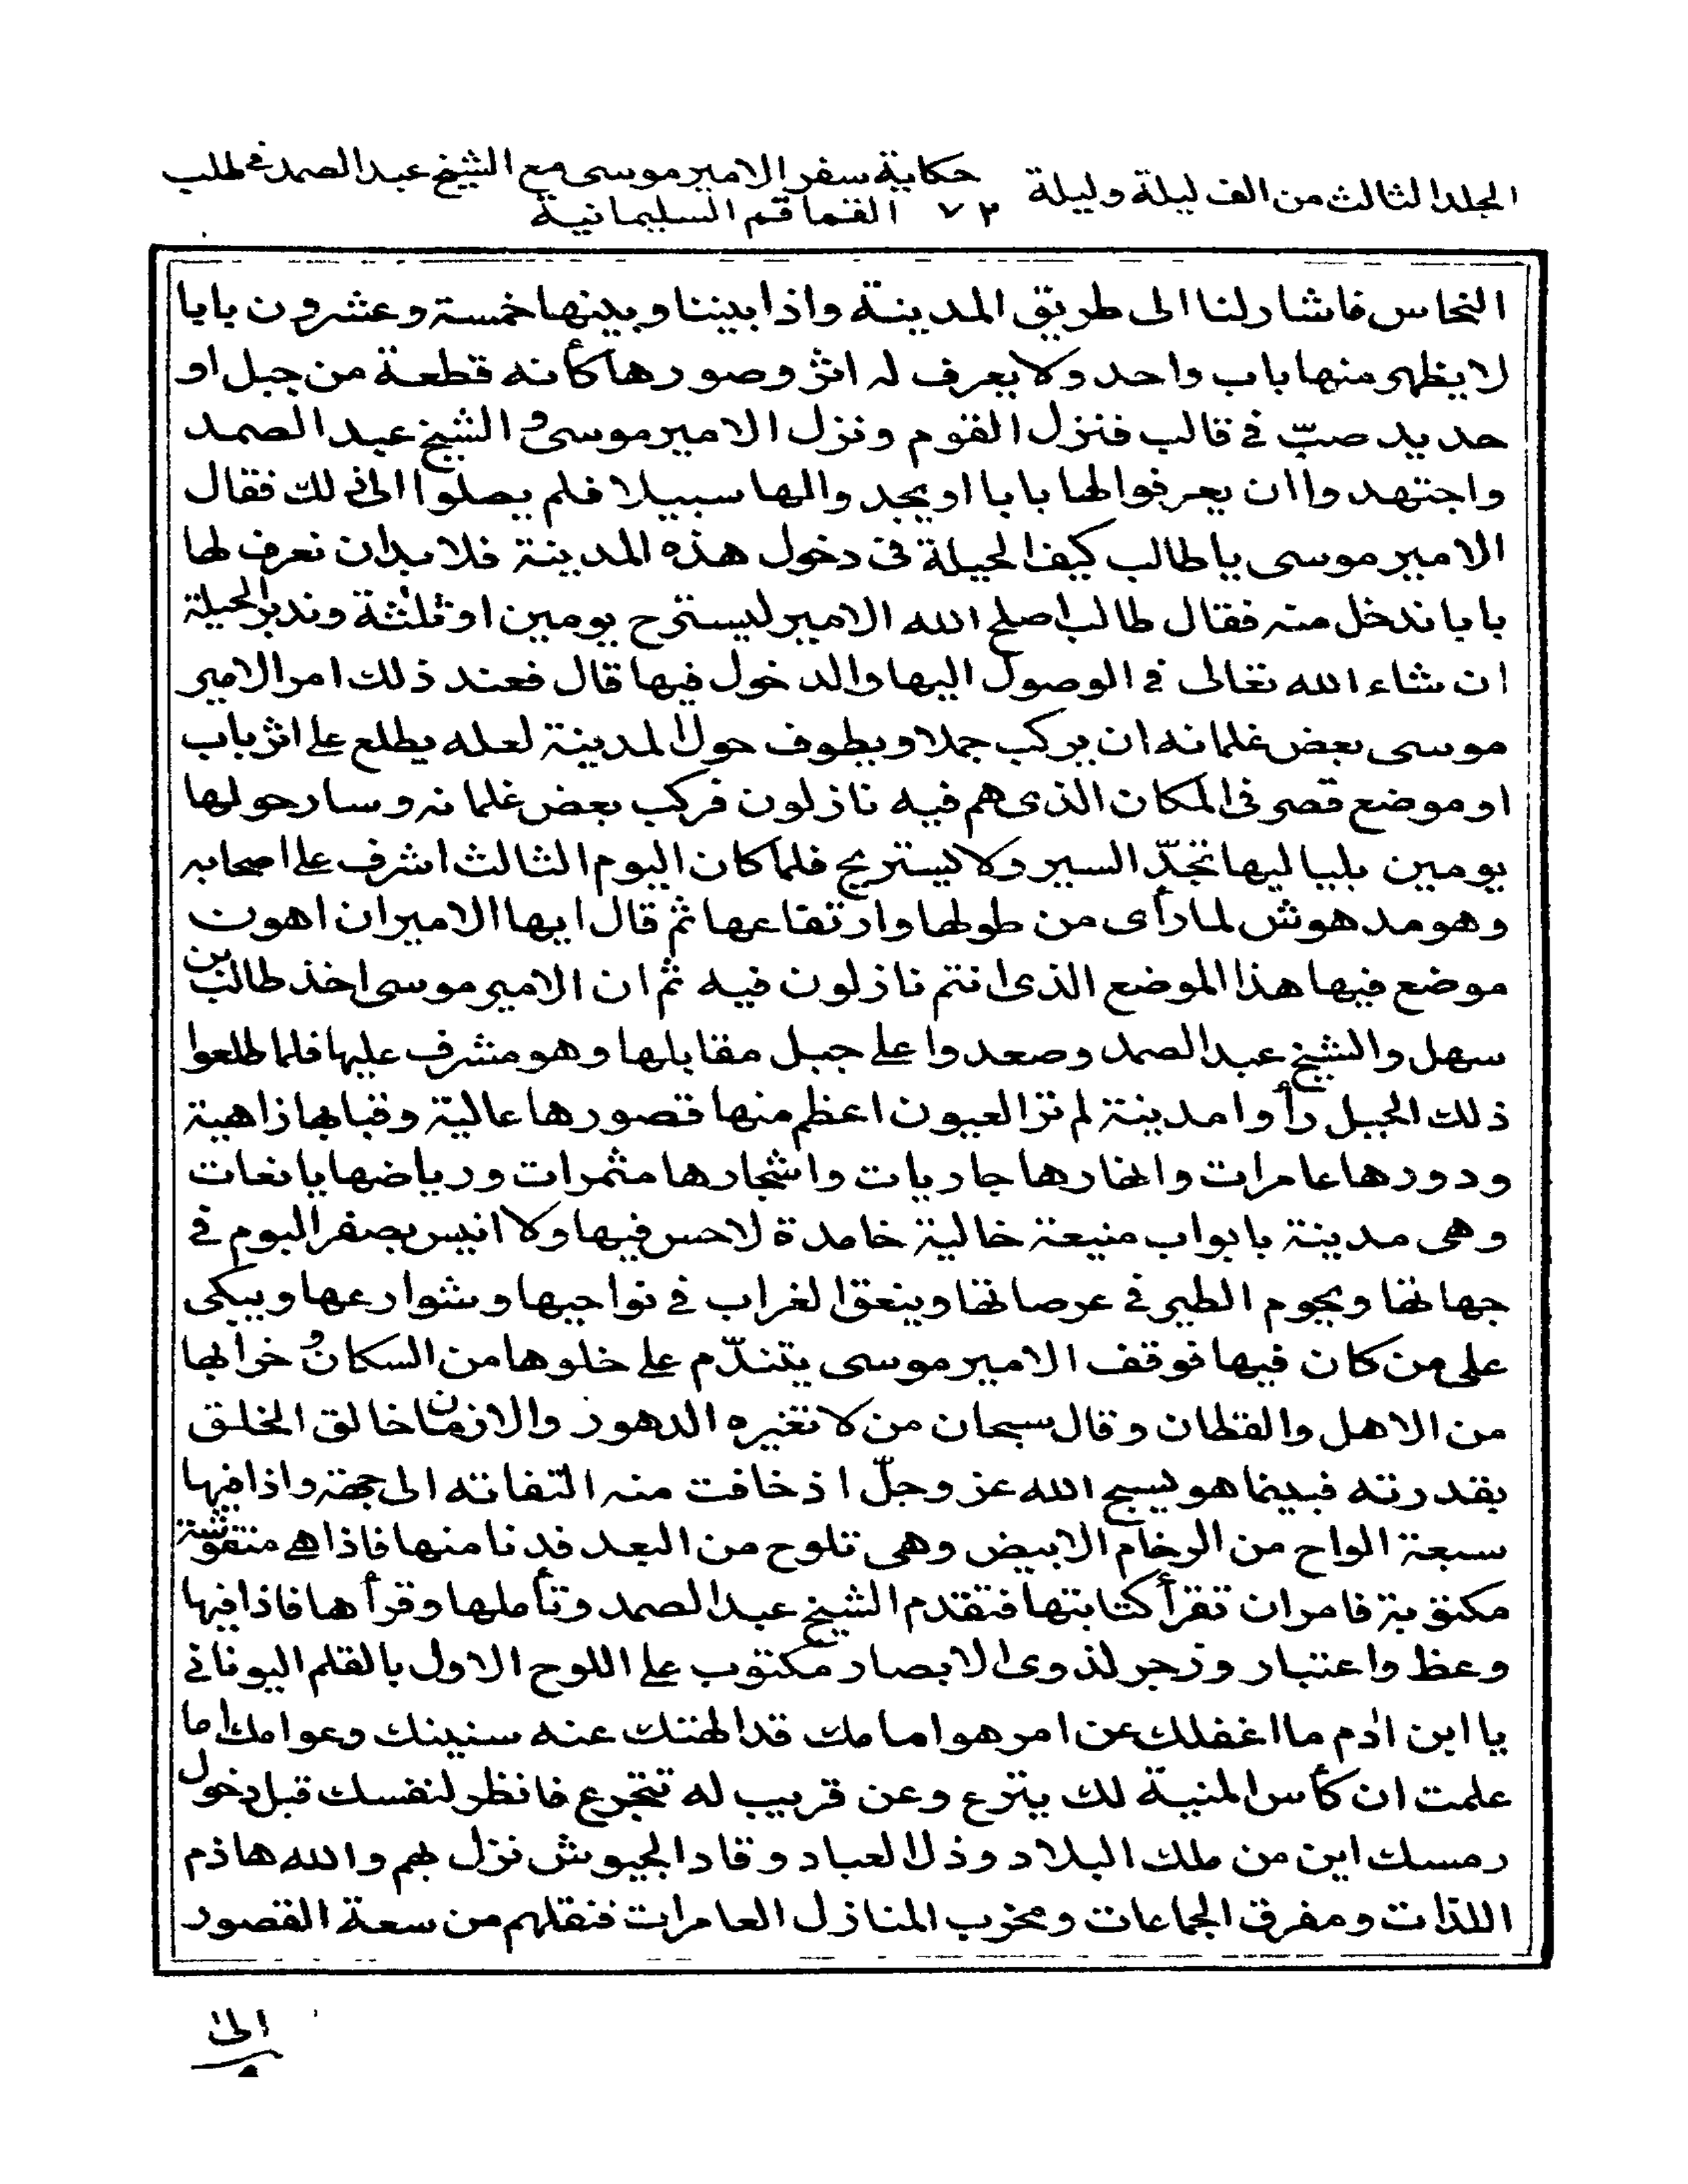 المجلد الثالث من الف ليلة وليلة
٧٣
حكاية سفر الامير موسى مع الشيخ عبد الصمد فى طلب
القماقم السليمانية
النحاس فاشار لنا الى طريق المدينة واذا بيننا وبينها خمسة وعشرون بابا
لا يظهر منها باب واحد ولا يعرف له اثر وصورها كأنه قطعة من جبل او
حديد صبّ فى قالب فنزل القوم ونزل الامير موسى و الشيخ عبد الصمد
واجتهدوا ان يعرفوا لها بابا او يجدوا لها سبيلا فلم يصلوا الى ذلك فقال
الامير موسى يا طالب كيف الحيلة فى دخول هذه المدينة فلا بد ان نعرف لها
بابا ندخل منه فقال طالب اصلح الله الامير ليسترح يومين او ثلثة وندبر الحيلة
ان شاء الله تعالى فى الوصول اليها والدخول فيها قال فعند ذلك امر الامير
موسى بعض غلمانه ان يركب جملا ويطوف حول المدينة لعله يطلع على اثر باب
او موضع قصر فى المكان الذى هم فيه نازلون فركب بعض غلمانه وسار حولها
يومين بلياليها تجدّ السير ولا يستريح فلما كان اليوم الثالث اشرف على اصحابه
وهو مدهوش لما رأى من طولها وارتفاعها ثم قال ايها الامير ان اهون
موضع فيها هذا الموضع الذى انتم نازلون فيه ثم ان الامير موسى اخذ طالب بن
سهل والشيخ عبد الصمد وصعدوا على جبل مقابلها وهو مشرف عليها فلما طلعوا
ذلك الجبل رأوا مدينة لم تر العيون اعظم منها قصورها عالية وقبابها زاهية
ودورها عامرات وانهارها جاريات واشجارها مثمرات ورياضها يانعات
وهى مدينة بابواب منيعة خالية خامدة لا حس فيها ولا انيس يصفر البوم فى
جهاتها ويحوم الطير فى عرصاتها وينعق الغراب فى نواحيها وشوارعها ويبكى
على من كان فيها فوقف الامير موسى يتندّم على خلوها من السكان و خرابها
من الاهل والقطان وقال سبحان من لا تغيره الدهور والازمان خالق الخلق
بقدرته فبينما هو يسبح الله عز وجلّ اذ خافت منه التفاتة الى جهة واذا فيها
سبعة الواح من الرخام الابيض وهى تلوح من البعد فدنا منها فاذا هى منقوشة
مكتوبة فامر ان تقرأ كتابتها فتقدم الشيخ عبد الصمد وتأملها وقرأها فاذا فيها
وعظ واعتبار وزجر لذوى الابصار مكتوب على اللوح الاول بالقلم اليونانى
يا ابن ادم ما اغفلك عن امر هو امامك قد الهتك عنه سنينك وعوامك اما
علمت ان كأس المنية لك يترع وعن قريب له تتجرع فانظر لنفسك قبل دخول
رمسك اين من ملك البلاد وذل العباد وقاد الجيوش نزل بهم والله هاذم
اللذات ومفرق الجماعات ومخرب المنازل العامرات فنقلهم من سعة القصور
الى